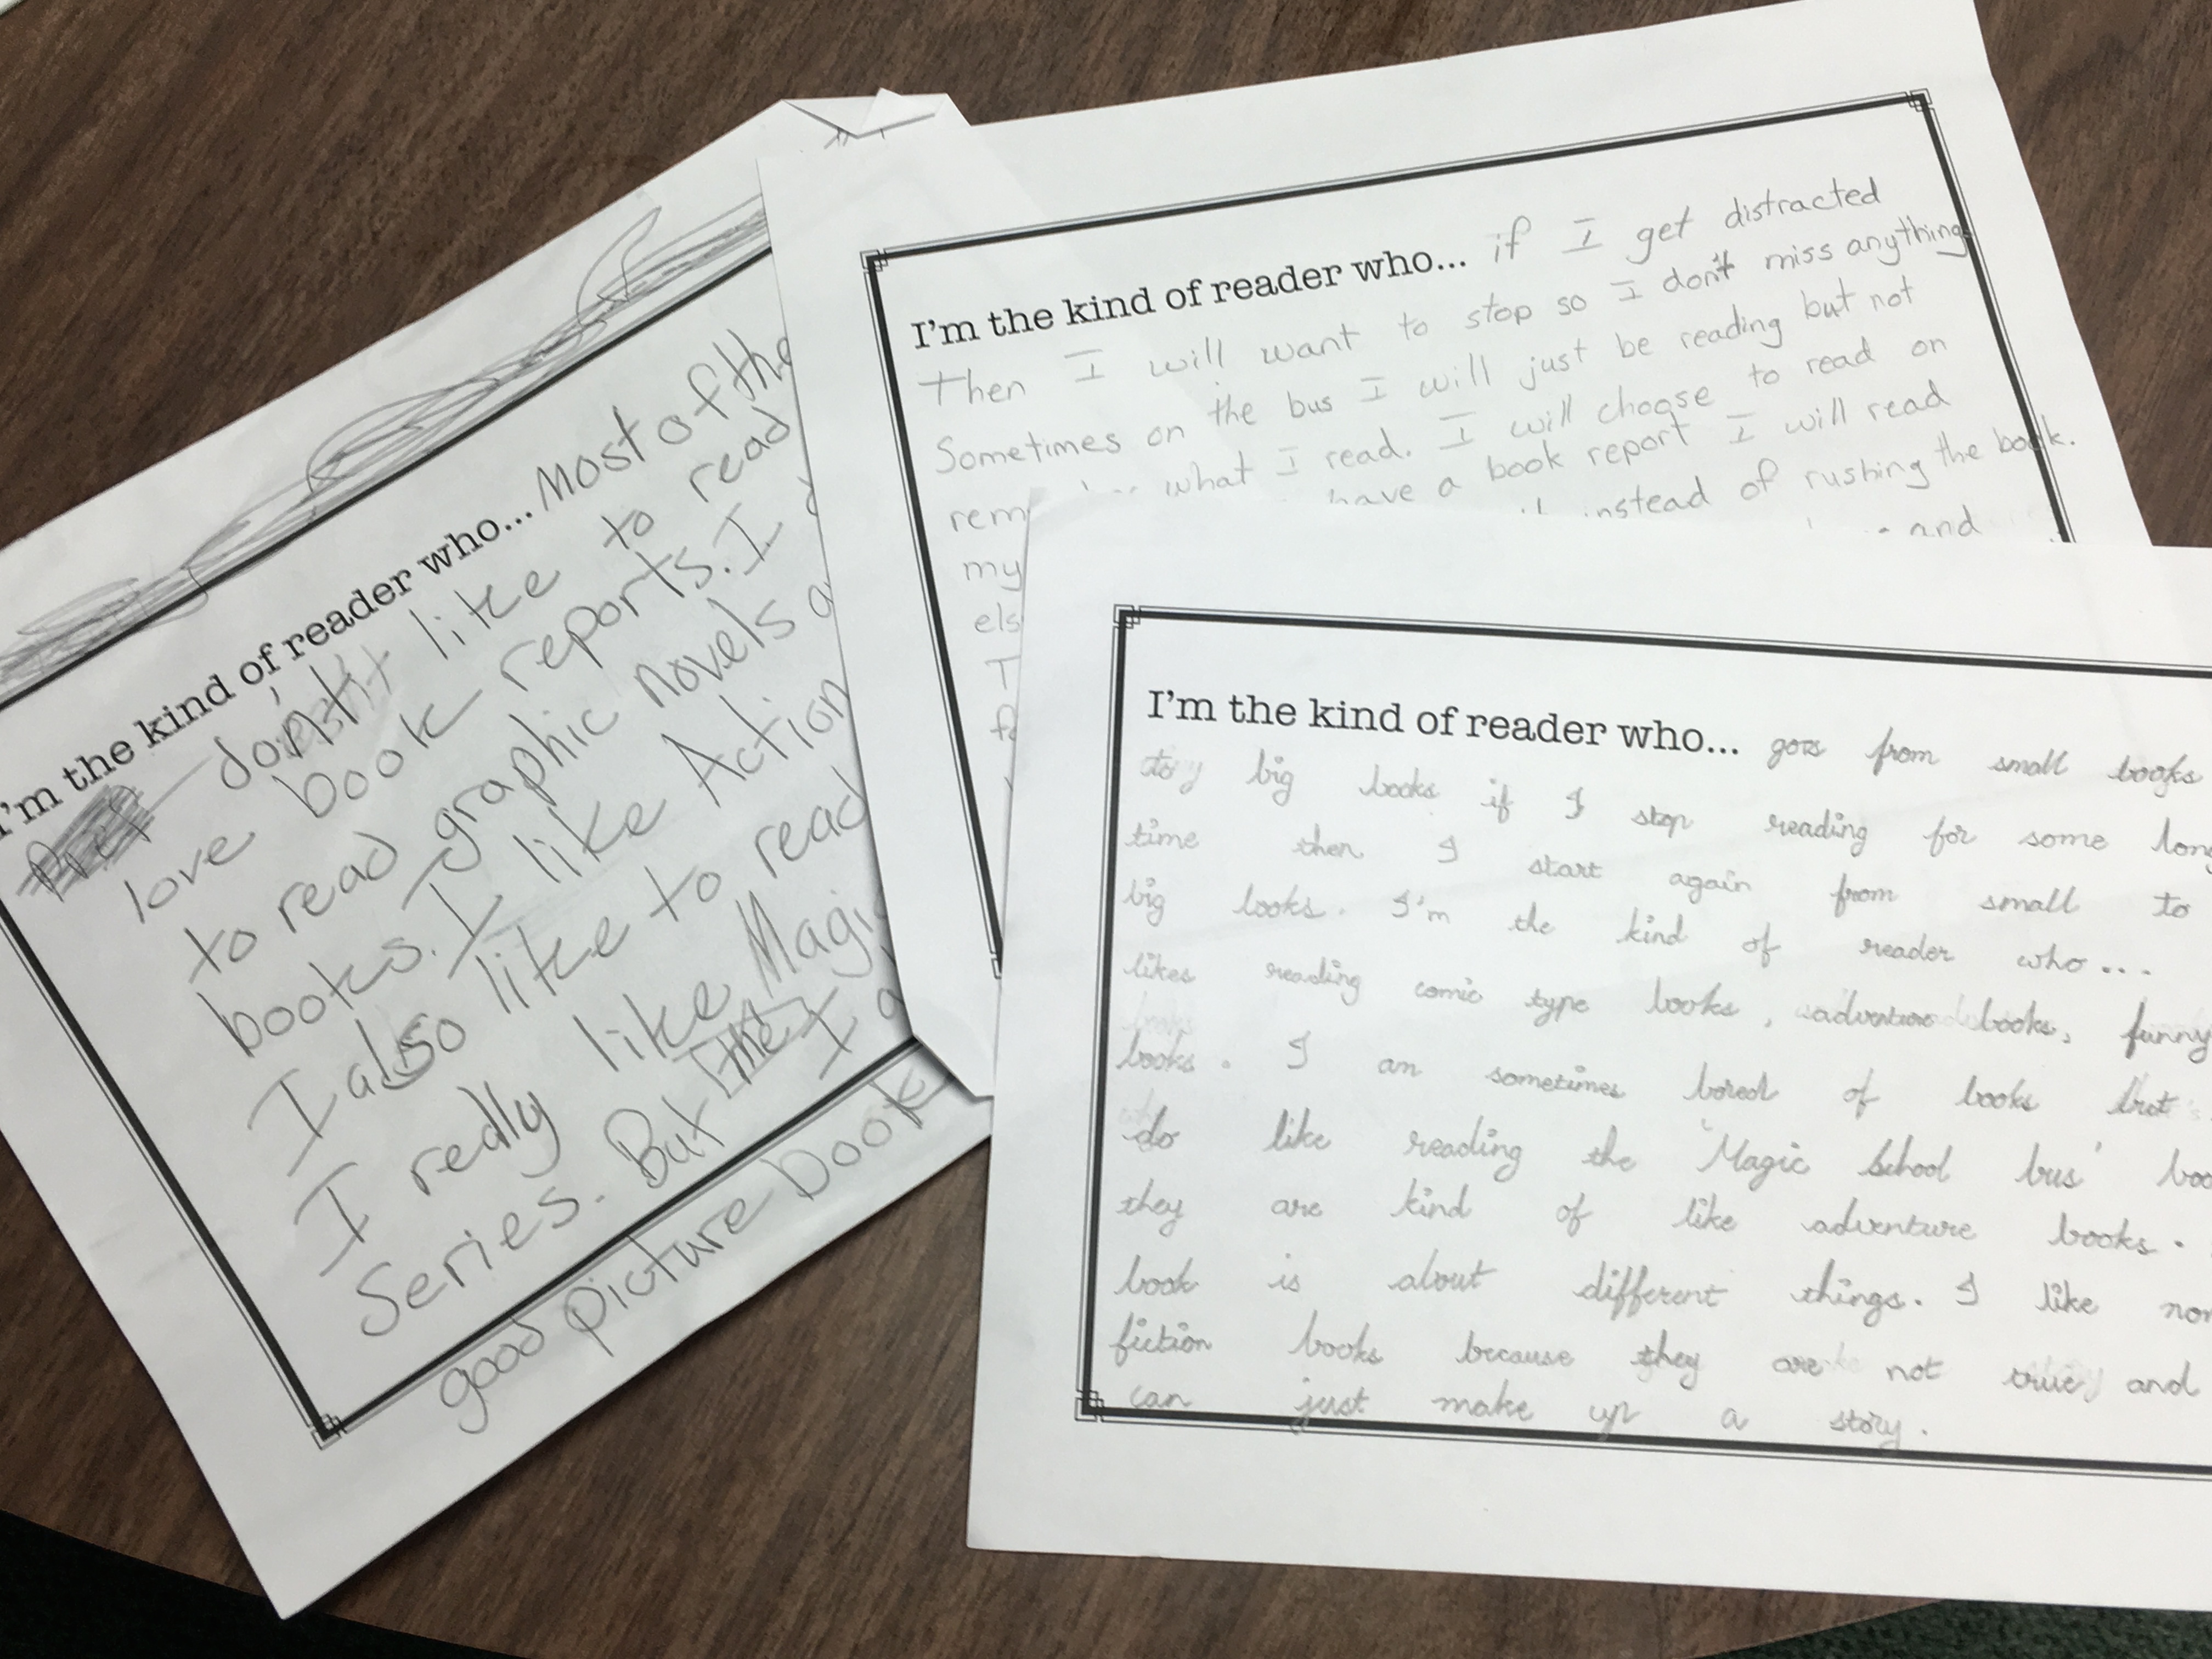 I'm the kind of reader who... Most of the
don't like to read
love book reports. I
to read graphic novels
books. I like Action
I also like to read
I really like Magic
Series. But I
good picture book
I'm the kind of reader who... if I get distracted
Then I will want to stop so I don't miss anything
Sometimes on the bus I will just be reading but not
what I read. I will choose to read on
my have a book report I will read
instead of rushing the book.
and
I'm the kind of reader who... goes from small books
to big books if I stop reading for some long
time then I start again from small to
big books. I'm the kind of reader who...
likes reading comic type books, adventure books, funny
books. I am sometimes bored of books but
do like reading the 'Magic School bus'
they are kind of like adventure books.
book is about different things. I like non
fiction books because they are not true and
can just make up a story.